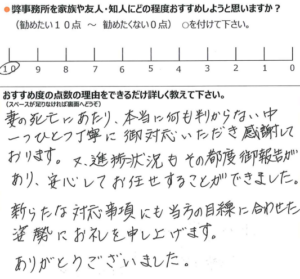 ●弊事務所を家族や友人・知人にどの程度おすすめしようと思いますか?
(勧めたい10点 ~ 勧めたくない0点) ○を付けて下さい。
10 9 8 7 6 5 4 3 2 1 0
おすすめ度の点数の理由をできるだけ詳しく教えて下さい。
(スペースが足りなければ裏面へどうぞ)
妻の死亡にあたり、本当に何も判からない中
一つひとつ丁寧に御対応いただき感謝して
おります。又、進捗状況もその都度御報告が
あり、安心してお任せすることができました。
新らたな対応事項にも当方の目線に合わせた
姿勢にお礼を申し上げます。
ありがとうございました。